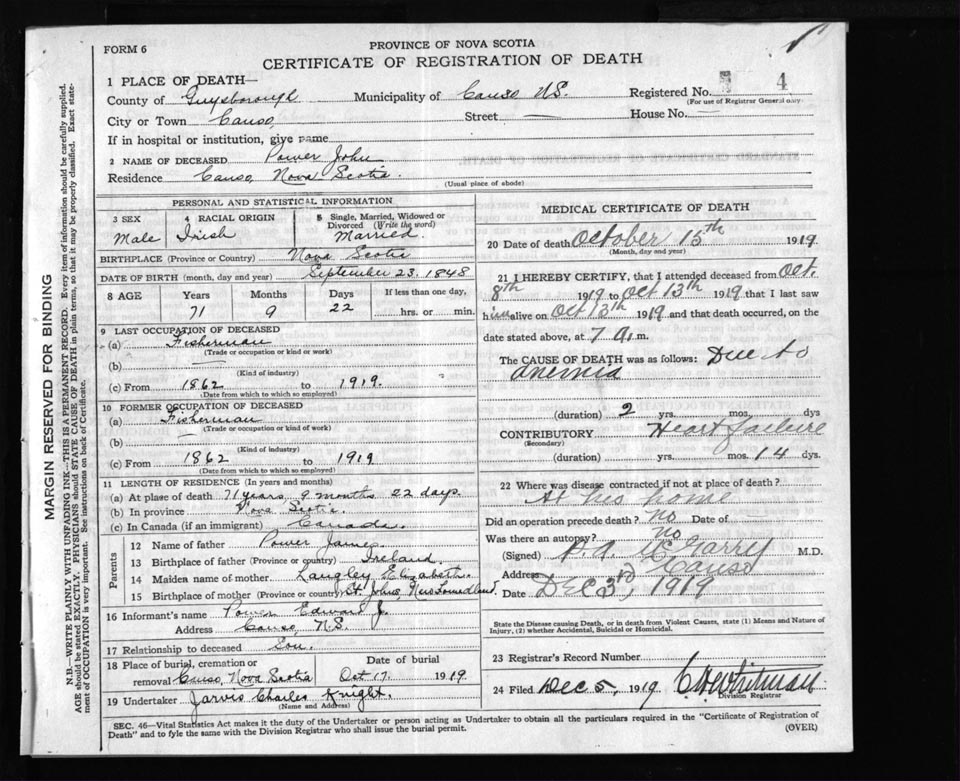 FORM 6
PROVINCE OF NOVA SCOTIA
CERTIFICATE OF REGISTRATION OF DEATH
1 PLACE OF DEATH—
County of Guysborough Municipality of Canso N.S. Registered No. 4
(For use of Registrar General only)
City or Town Canso, Street — House No. —
If in hospital or institution, give name
2 NAME OF DECEASED Power John
Residence Canso, Nova Scotia.
(Usual place of abode)
PERSONAL AND STATISTICAL INFORMATION
3 SEX Male
4 RACIAL ORIGIN Irish
5 Single, Married, Widowed or Divorced (Write the word) Married.
BIRTHPLACE (Province or Country) Nova Scotia
DATE OF BIRTH (month, day and year) September 23. 1848
8 AGE Years Months Days If less than one day,
71 9 22 hrs. or min.
9 LAST OCCUPATION OF DECEASED
(a) Fisherman
(Trade or occupation or kind or work)
(b) —
(Kind of industry)
(c) From 1862 to 1919.
(Date from which to which so employed)
10 FORMER OCCUPATION OF DECEASED
(a) Fisherman
(Trade or occupation or kind of work)
(b) —
(Kind of industry)
(c) From 1862 to 1919
(Date from which to which so employed)
11 LENGTH OF RESIDENCE (In years and months)
(a) At place of death 71 years, 9 months 22 days.
(b) In province Nova Scotia.
(c) In Canada (if an immigrant) Canada.
Parents
12 Name of father Power James
13 Birthplace of father (Province or country) Ireland.
14 Maiden name of mother Langley Elizabeth.
15 Birthplace of mother (Province or country) St. Johns Newfoundland.
16 Informant's name Power Edward J.
Address Canso, N.S.
17 Relationship to deceased Son.
18 Place of burial, cremation or removal Canso, Nova Scotia
Date of burial Oct 17. 1919.
19 Undertaker Jarvis Charles Knight.
(Name and Address)
MEDICAL CERTIFICATE OF DEATH
20 Date of death October 15th 1919.
(Month, day and year)
21 I HEREBY CERTIFY, that I attended deceased from Oct.
8th 1919 to Oct 13th 1919 that I last saw
him alive on Oct 13th 1919 and that death occurred, on the
date stated above, at 7 a.m.
The CAUSE OF DEATH was as follows: Due to
anemia
(duration) 2 yrs. mos. dys
CONTRIBUTORY Heart failure
(Secondary)
(duration) yrs. mos. 14 dys.
22 Where was disease contracted if not at place of death?
At his home
Did an operation precede death? no Date of
Was there an autopsy? no
(Signed) M.D.
Address Canso
Date Dec 3rd, 1919
State the Disease causing Death, or in death from Violent Causes, state (1) Means and Nature of
Injury, (2) whether Accidental, Suicidal or Homicidal.
23 Registrar's Record Number
24 Filed Dec 5, 1919 Whitman
Division Registrar
SEC. 46—Vital Statistics Act makes it the duty of the Undertaker or person acting as Undertaker to obtain all the particulars required in the "Certificate of Registration of
Death" and to fyle the same with the Division Registrar who shall issue the burial permit. (OVER)
MARGIN RESERVED FOR BINDING
N.B.—WRITE PLAINLY WITH UNFADING INK—THIS IS A PERMANENT RECORD. Every item of information should be carefully supplied.
AGE should be stated EXACTLY. PHYSICIANS should STATE CAUSE OF DEATH in plain terms, so that it may be properly classified. Exact state-
ment of OCCUPATION is very important. See instructions on back of Certificate.